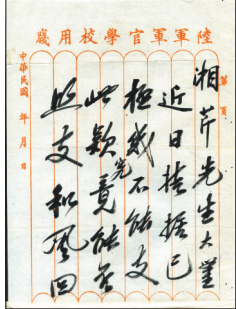 陸軍軍官學校用牋
第 頁
湘芹先生大鑒
近日拮据已
極 不能支
此款先竟能否
照支和風回
中華民國 年 月 日